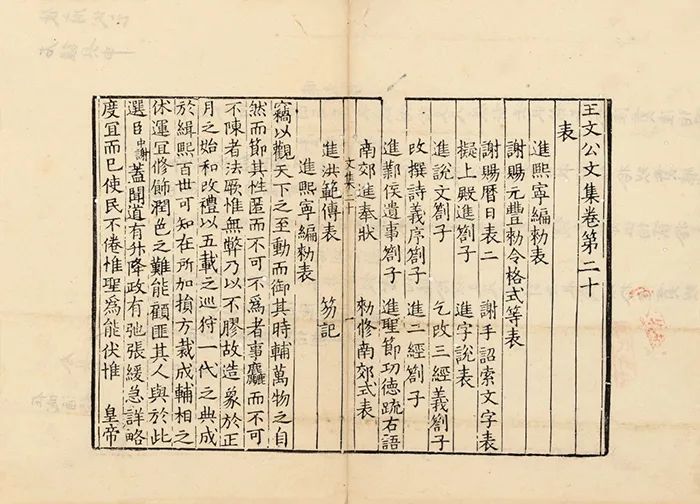 王文公文集卷第二十
表
進熙寧編勑表
謝賜元豐勑令格式等表
謝賜曆日表二　謝手詔索文字表
擬上殿進劄子　進字說表
進說文劄子　乞改三經義劄子
改撰詩義序劄子　進二經劄子
進鄴侯遺事劄子　進聖節功德疏右語
南郊進奉狀　勑修南郊式表
文集二十　一
進洪範傳表　笏記
進熙寧編勑表
竊以觀天下之至動而御其時輔萬物之自
然而節其性匿而不可不爲者事麤而不可
不陳者法歟惟無弊乃以不膠故造象於正
月之始和改禮以五載之巡狩一代之典成
於緝熙百世可知在所加損方裁成輔相之
休運宜修飾潤色之難能顧匪其人與於此
選臣中謝蓋聞道有升降政有弛張緩急詳略
度宜而已使民不倦惟聖爲能伏惟　皇帝